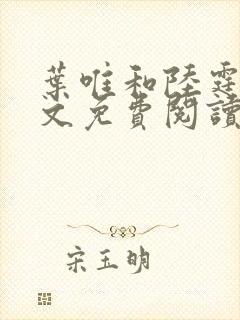 葉唯和陸霆
文免費閱讀
宋玉明